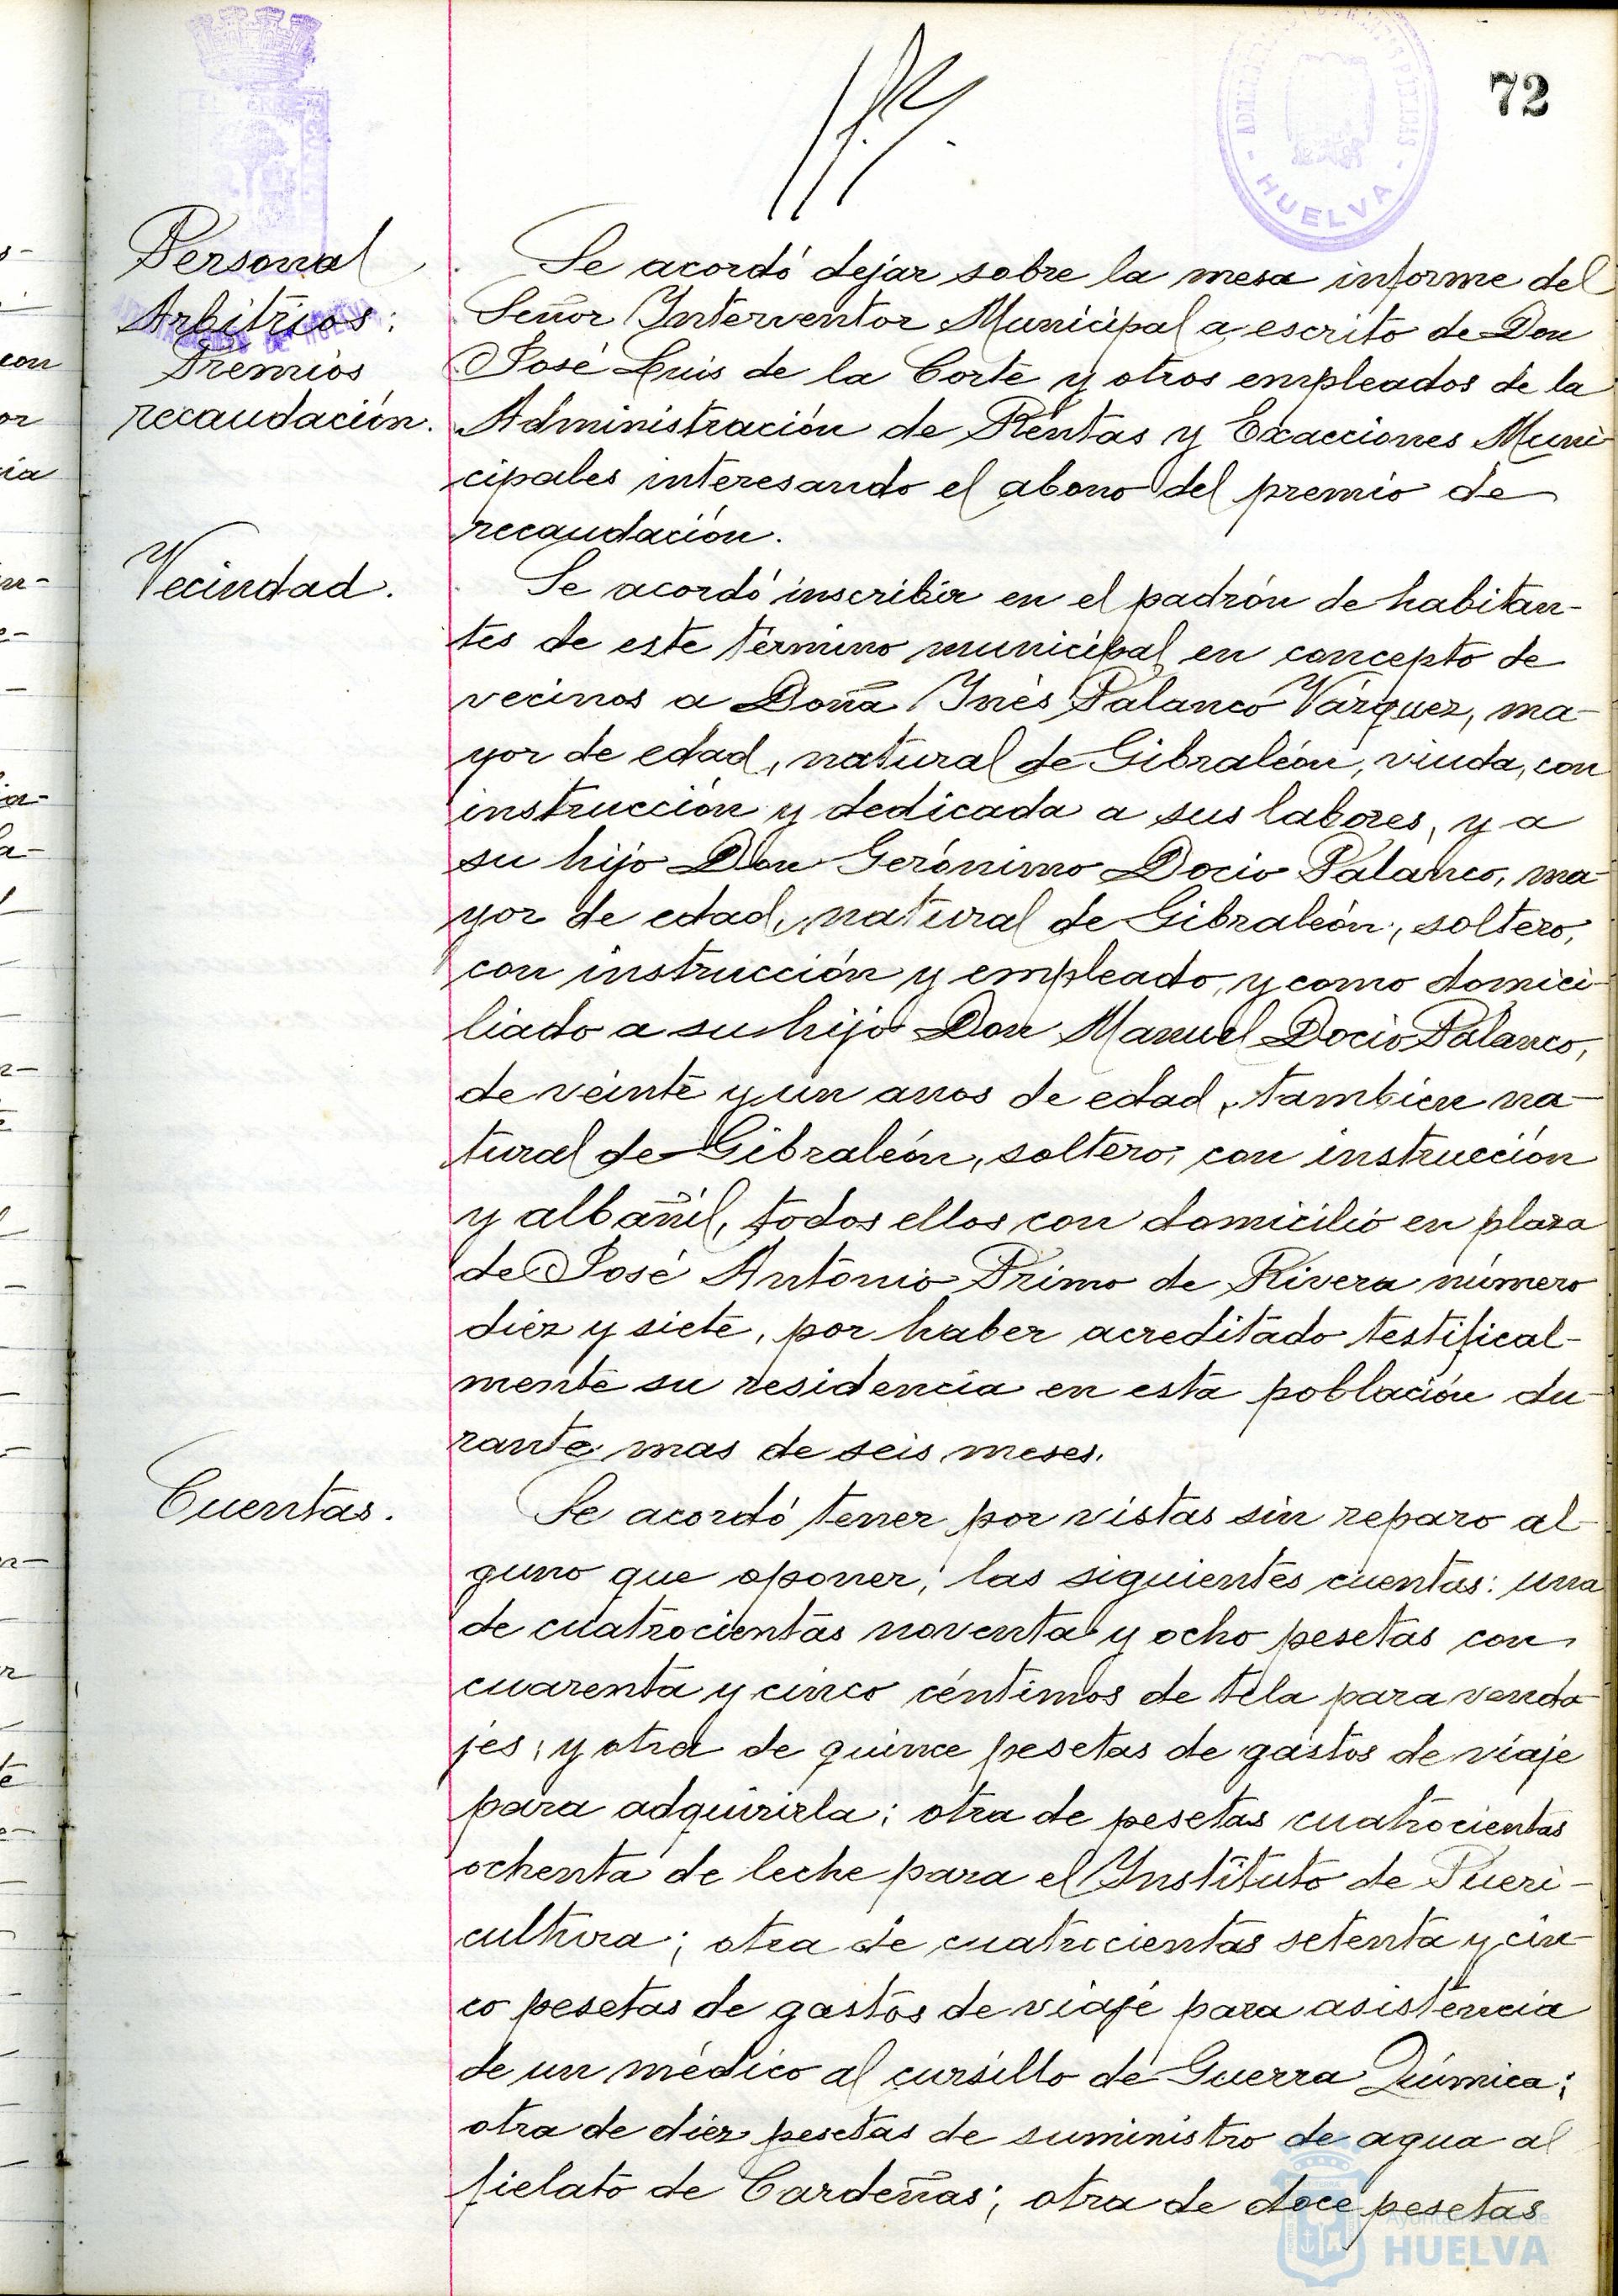 72
HUELVA
Personal
Arbitrios:
Premios
recaudación.
Se acordó dejar sobre la mesa informe del
Señor Interventor Municipal a escrito de Don
José Luis de la Corte y otros empleados de la
Administración de Rentas y Exacciones Muni
cipales interesando el abono del premio de
recaudación.
Vecindad.
Se acordó inscribir en el padrón de habitan-
tes de este término municipal en concepto de
vecinos a Doña Inés Palanco Vázquez, ma-
yor de edad, natural de Gibraleón, viuda, con
instrucción y dedicada a sus labores, y a
su hijo Don Gerónimo Docio Palanco, ma-
yor de edad, natural de Gibraleón, soltero,
con instrucción y empleado, y como domici-
liado a su hijo Don Manuel Docio Palanco,
de veinte y un anos de edad, tambien na-
tural de Gibraleón, soltero, con instrucción
y albañil, todos ellos con domicilio en plaza
de José Antonio Primo de Rivera número
diez y siete, por haber acreditado testifical-
mente su residencia en esta población du-
rante mas de seis meses.
Cuentas.
Se acordó tener por vistas sin reparo al-
guno que oponer, las siguientes cuentas: una
de cuatrocientas noventa y ocho pesetas con
cuarenta y cinco céntimos de tela para venda-
jes; y otra de quince pesetas de gastos de viaje
para adquirirla; otra de pesetas cuatrocientas
ochenta de leche para el Instituto de Pueri-
cultura; otra de cuatrocientas setenta y cin-
co pesetas de gastos de viaje para asistencia
de un médico al cursillo de Guerra Química;
otra de diez pesetas de suministro de agua al
fielato de Cardeñas; otra de doce pesetas
Ayuntamiento de
HUELVA